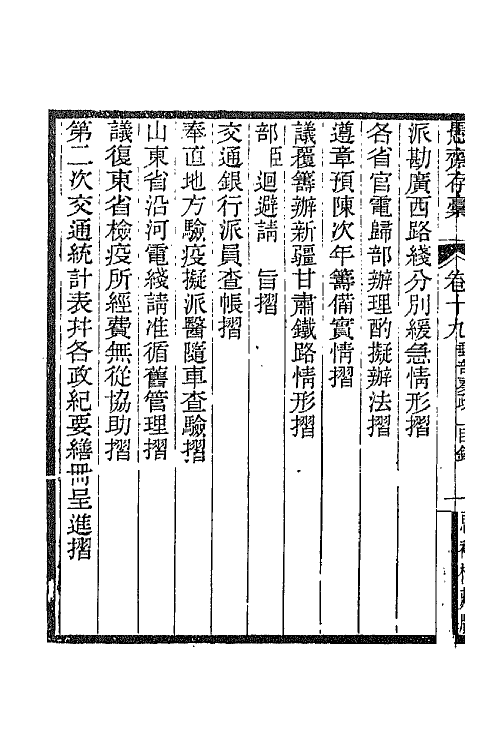 愚齋存稾 卷十九 郵部奏疏 目錄 一
派勘廣西路綫分別緩急情形摺
各省官電歸部辦理酌擬辦法摺
遵章預陳次年籌備實情摺
議覆籌辦新疆甘肅鐵路情形摺
部臣迴避請 旨摺
交通銀行派員查帳摺
奉直地方驗疫擬派醫隨車查驗摺
山東省沿河電綫請准循舊管理摺
議復東省檢疫所經費無從協助摺
第二次交通統計表幷各政紀要繕冊呈進摺